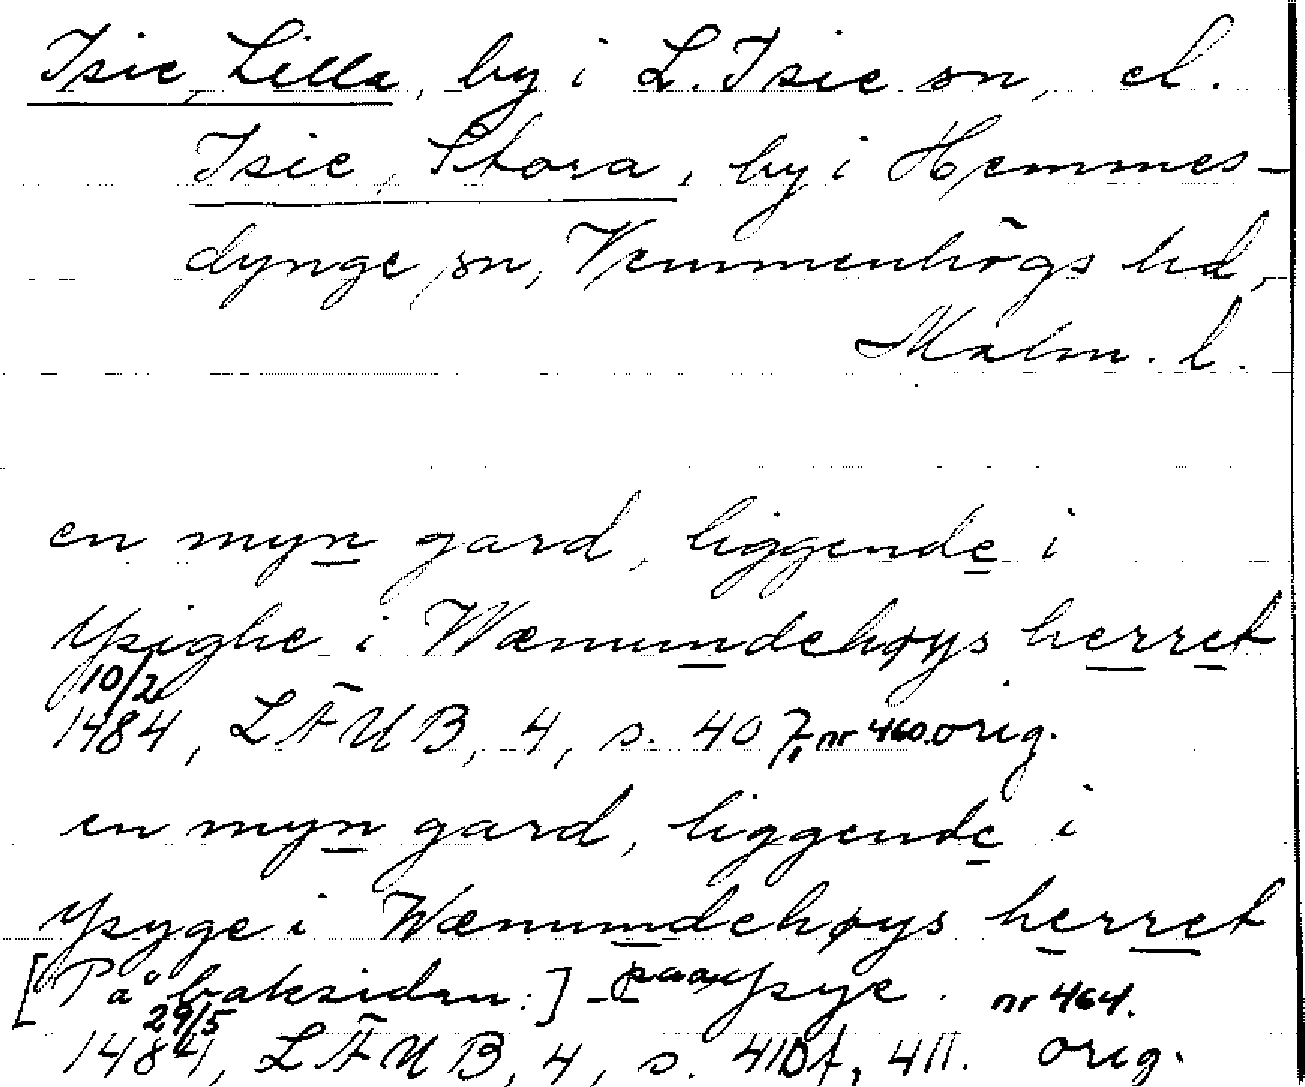 Isie, Lilla, by i L. Isie sn, el.
Isie, Stora, by i Hemmes-
dynge sn, Vemmenhögs hd,
Malm. l.
en myn gard, liggende i
Ysighe i Wænumdehøys herret
10/2
1484, LÄUB, 4, s. 407, nr 460. orig.
en myn gard, liggende i
Ysyge i Wænumdehøys herret
[På baksidan:] – paa Ysye. nr 464.
29/5
1484, LÄUB, 4, s. 410f, 411. orig.